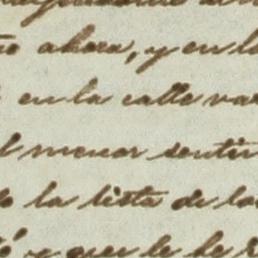 ahora, y en l
en la calle va
l menor senti
la lista de la
y que le he